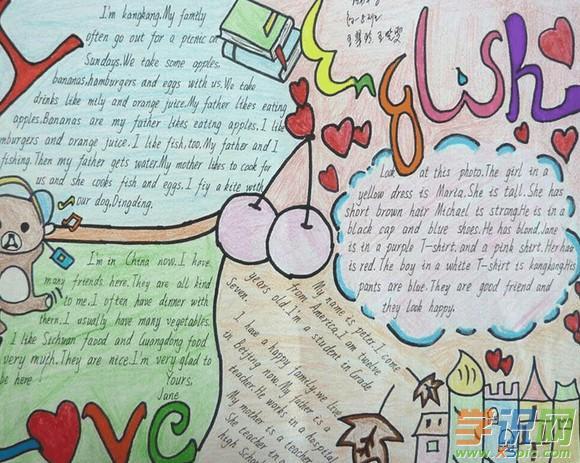 English
I'm kangkang.My family
often go out for a picnic on
Sundays.We take some apples.
bananas,hamburgers and eggs with us.We take
drinks like mily and orange juice.My father likes eating
apples.Bananas are my father likes eating apples.I like
mburgers and orange juice.I like fish,too.My father and I
fishing.Then my father gets water.My mother likes to cook for
us and she cooks fish and eggs.I fiy a kite with
our dog,Dingding.
Look at this photo.The girl in a
yellow dress is Maria.She is tall.She has
short brown hair Michael is strong.He is in a
black cap and blue shoes.He has blond.Jane
is in a purple T-shirt.and a pink shirt.Her hair
is red.The boy in a white T-shirt is kangkang.His
pants are blue.They are good friend and
they look happy.
I'm in China now.I have
many friends here.They are all kind
to me.I often have dinner with
them.I usually have many vegetables.
I like Sichuan faood and Guangdong food
very much.They are nice.I'm very glad to
be here!
Yours,
Jane
My name is peter.I come
from America.I am twelve
years old.I'm a student in Grade
Seven.
I have a happy family.we live
in Beijing now.My father is a
teacher.He works in a hospital
My mother is a teacher.
She teacher in a
high School
Love
学识网
www.xspic.com